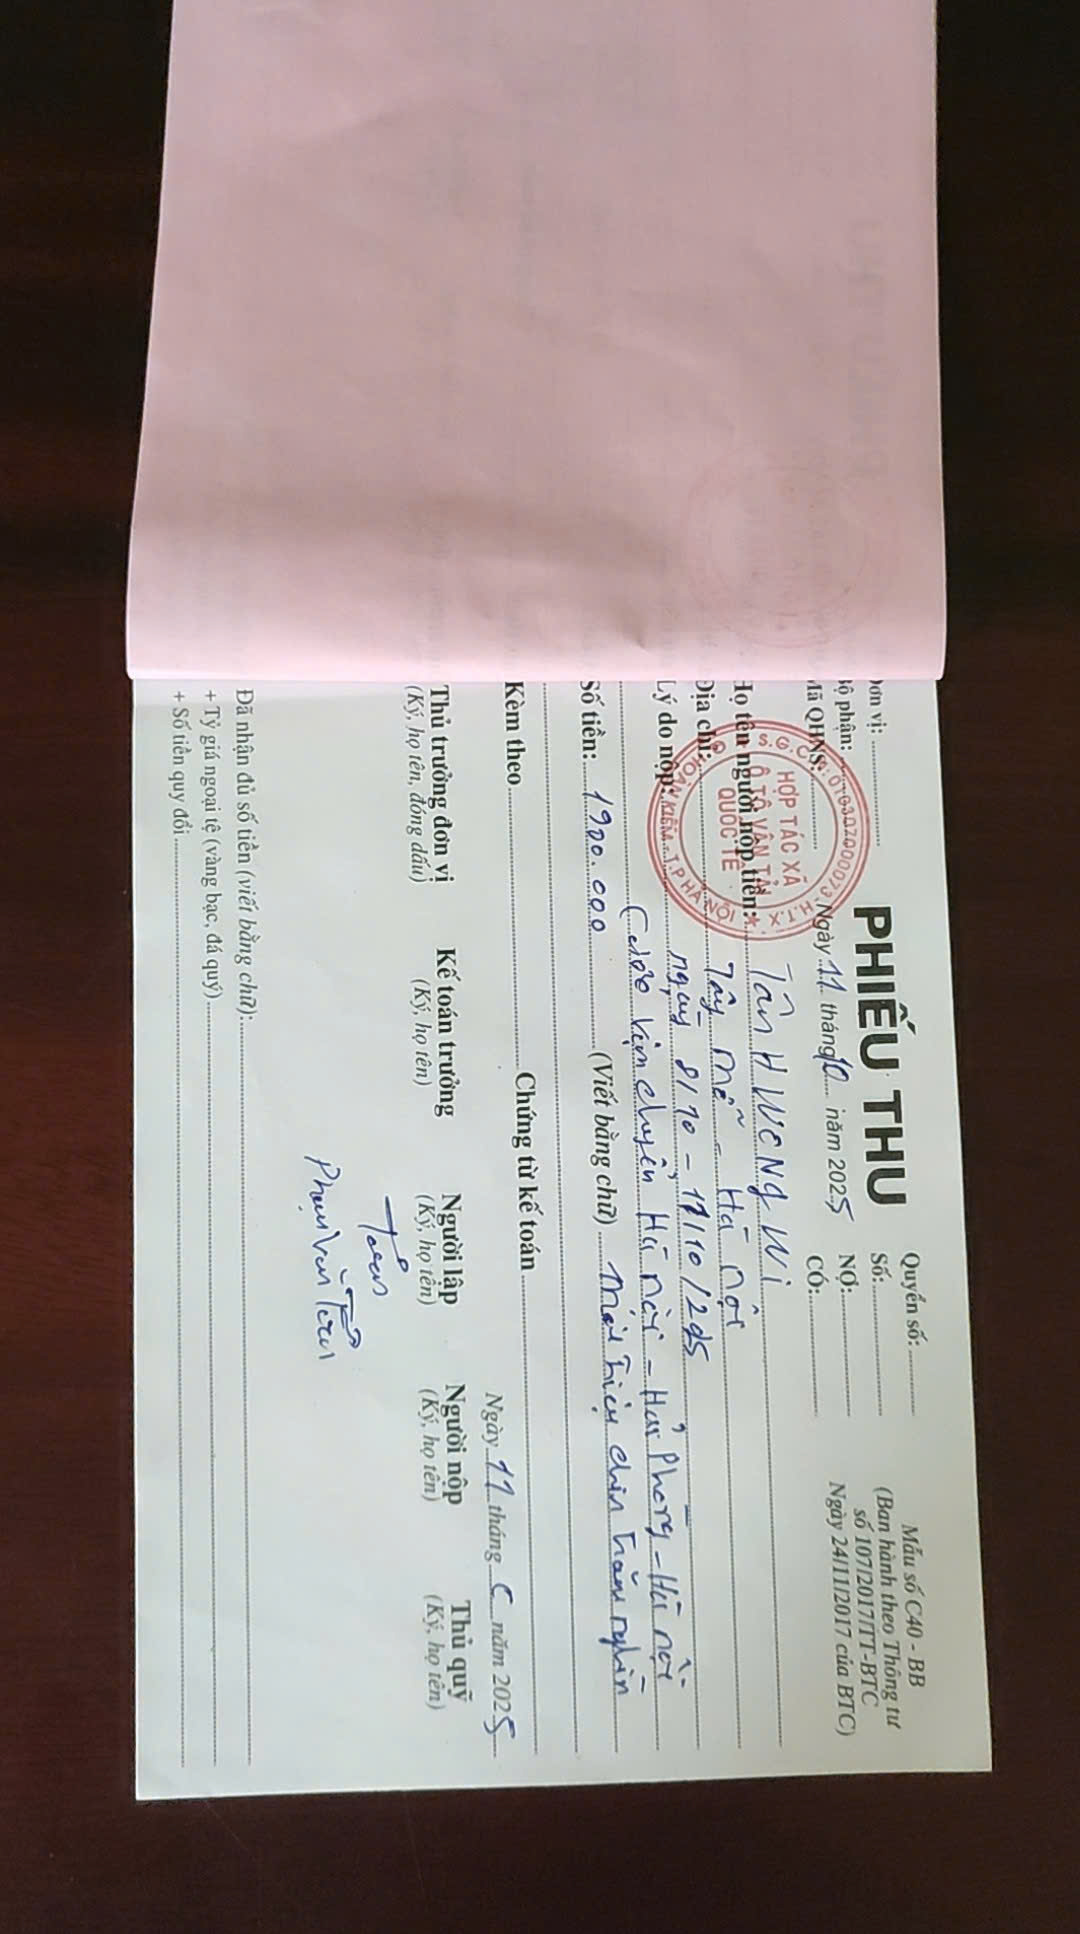 Đơn vị:
Bộ phận:
Mã QHNS:
PHIẾU THU
Ngày 11 tháng 10 năm 2025
Quyển số:
Số:
NỢ:
CÓ:
Mẫu số C40 - BB
(Ban hành theo Thông tư
số 107/2017/TT-BTC
Ngày 24/11/2017 của BTC)
S.G.C.N: 0103070000073. H.T.X
HỢP TÁC XÃ
Ô TÔ VẬN TẢI
QUỐC TẾ
HOÀN KIẾM - T.P HÀ NỘI
Họ tên người nộp tiền: Tân HWENg Wi
Địa chỉ: Tây mỗ - Hà nội
Lý do nộp: ngày 8/10 - 11/10/
Cước vận chuyển Hà nội - Hải Phòng - Hà nội
Số tiền: 1900.000 (Viết bằng chữ) một triệu chín trăm nghìn
Kèm theo Chứng từ kế toán
Ngày 11 tháng năm 2025
Thủ trưởng đơn vị
(Ký, họ tên, đóng dấu)
Kế toán trưởng
(Ký, họ tên)
Người lập
(Ký, họ tên)
Người nộp
(Ký, họ tên)
Thủ quỹ
(Ký, họ tên)
Phạm Văn
Đã nhận đủ số tiền (viết bằng chữ):
+ Tỷ giá ngoại tệ (vàng bạc, đá quý)
+ Số tiền quy đổi